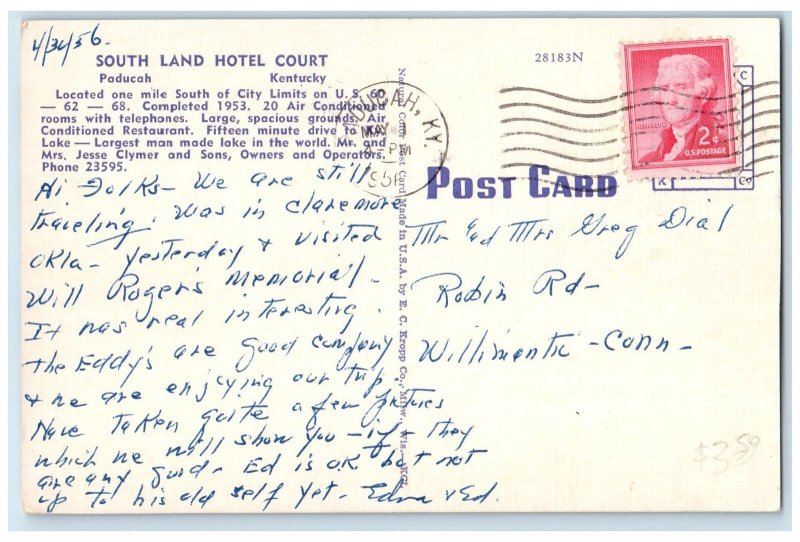 4/30/56.
SOUTH LAND HOTEL COURT
Paducah Kentucky
Located one mile South of City Limits on U.S. 60
— 62 — 68. Completed 1953. 20 Air Conditioned
rooms with telephones. Large, spacious grounds. Air
Conditioned Restaurant. Fifteen minute drive to Ky.
Lake — Largest man made lake in the world. Mr. and
Mrs. Jesse Clymer and Sons, Owners and Operators.
Phone 23595.
Hi Folks- We are still
traveling. Was in Claremore
Okla- yesterday & visited
Will Rogers Memorial.
It was real interesting.
The Eddy's are good company
& we are enjoying our trip.
Have taken quite a few pictures
which we will show you - if - they
are any good- Ed is OK but not
up to his old self yet- Edna & Ed.
Natural Color Post Card Made in U.S.A. by E. C. Kropp Co., Milw., Wis.
28183N
PADUCAH, KY.
MAY 1
PM
1956
2¢
U.S. POSTAGE
POST CARD
Mr and Mrs Greg Dial
Robin Rd-
Willimantic - Conn-
$3.59